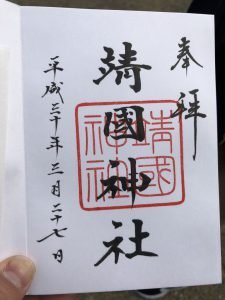 奉拝
靖國神社
靖國
神社
平成三十年三月二十七日